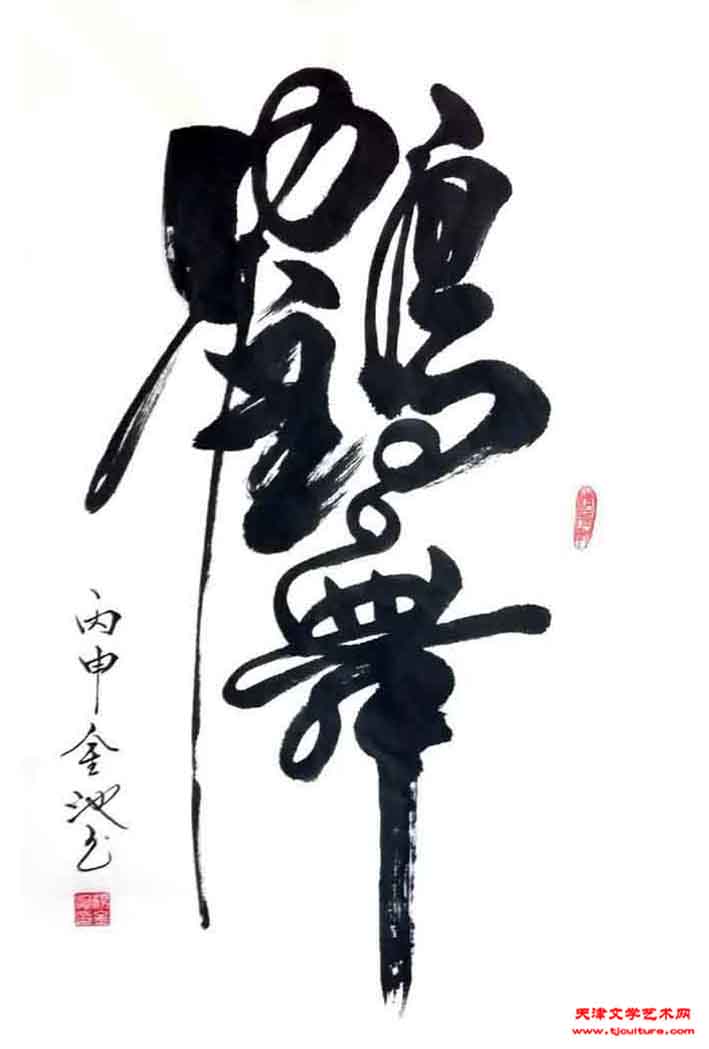 鶴舞
丙申金池书
天津文学艺术网
www.tjculture.com